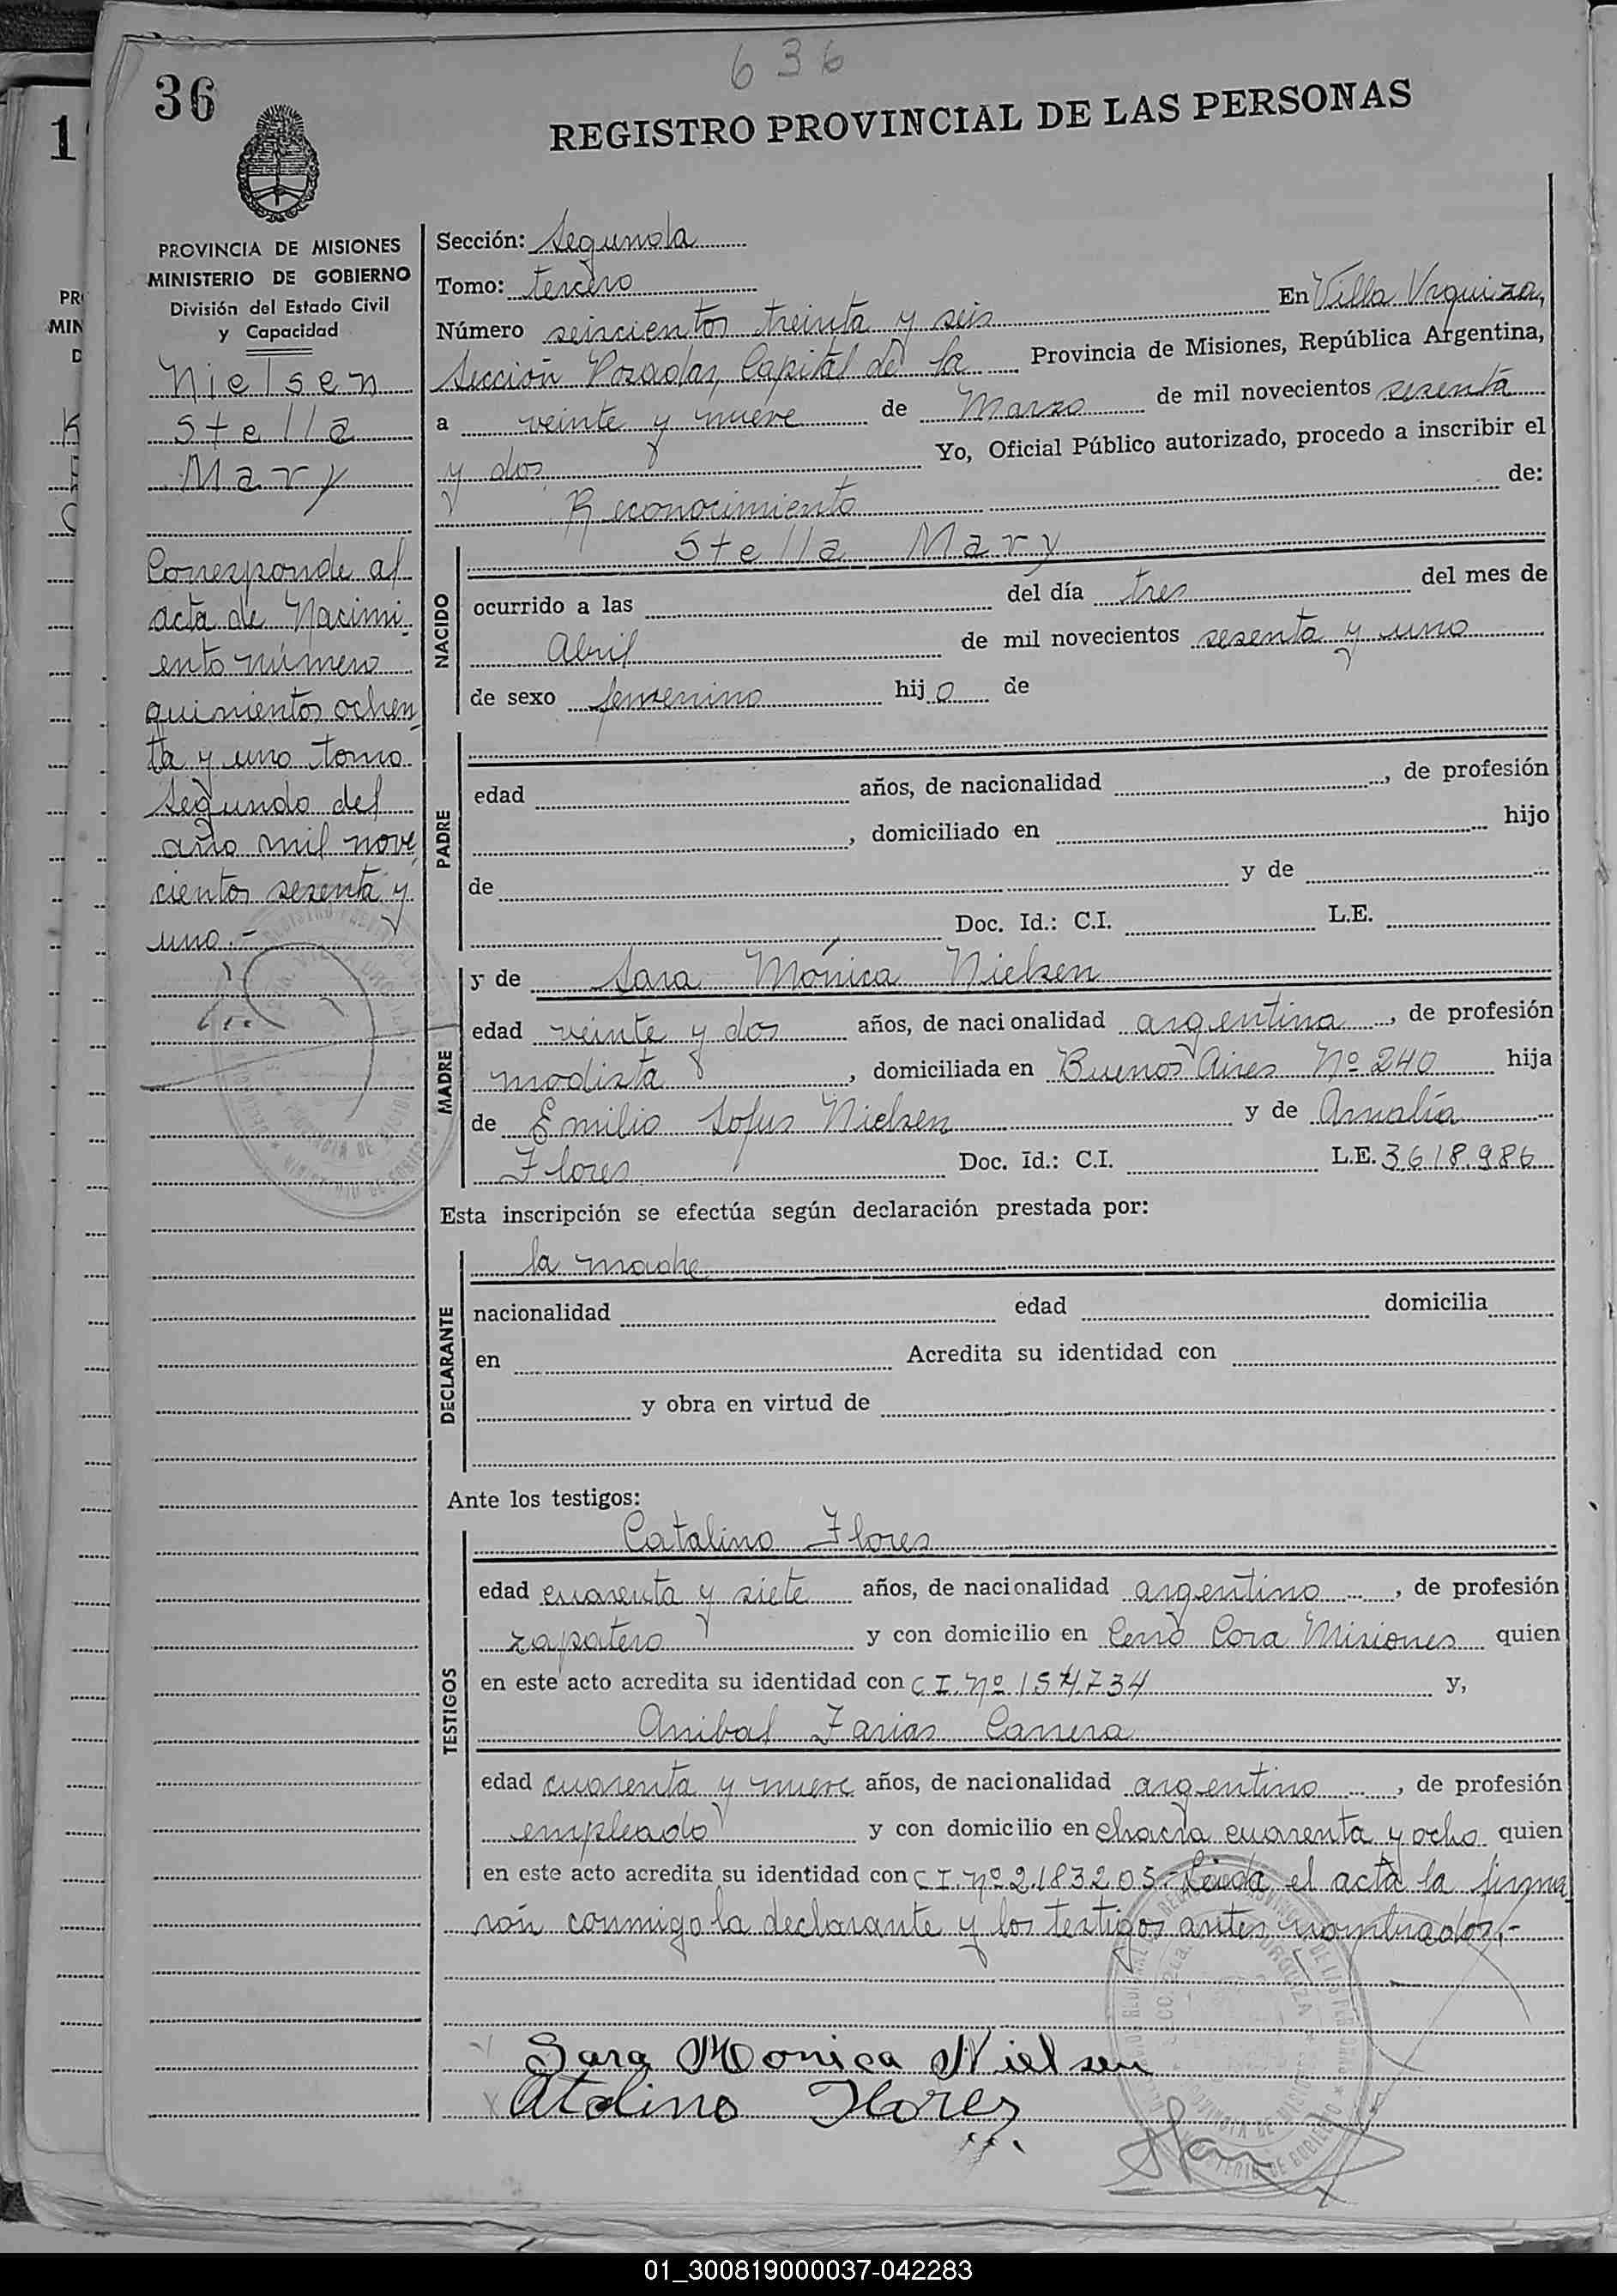 636
36
REGISTRO PROVINCIAL DE LAS PERSONAS
PROVINCIA DE MISIONES
MINISTERIO DE GOBIERNO
División del Estado Civil
y Capacidad
Nielsen
Stella
Mary
Corresponde al
acta de Nacimi-
ento número
quinientos ochen-
ta y uno tomo
segundo del
año mil nove-
cientos sesenta y
uno.-
Sección: Segunda
Tomo: tercero
Número seiscientos treinta y seis En Villa Urquiza,
Sección Posadas, Capital de la Provincia de Misiones, República Argentina,
a veinte y nueve de Marzo de mil novecientos sesenta
y dos Yo, Oficial Público autorizado, procedo a inscribir el
Reconocimiento de:
NACIDO
Stella Mary
ocurrido a las del día tres del mes de
Abril de mil novecientos sesenta y uno
de sexo femenino hijo de
PADRE
edad años, de nacionalidad , de profesión
, domiciliado en hijo
de y de
Doc. Id.: C.I. L.E.
MADRE
y de Sara Mónica Nielsen
edad veinte y dos años, de nacionalidad argentina, de profesión
modista, domiciliada en Buenos Aires Nº 240 hija
de Emilio Sofus Nielsen y de Amalia
Flores Doc. Id.: C.I. L.E. 3618.986
Esta inscripción se efectúa según declaración prestada por:
DECLARANTE
la madre
nacionalidad edad domicilia
en Acredita su identidad con
y obra en virtud de
Ante los testigos:
TESTIGOS
Catalino Flores
edad cuarenta y siete años, de nacionalidad argentino, de profesión
zapatero y con domicilio en Cerro Cora Misiones quien
en este acto acredita su identidad con C.I. Nº 154.734 y,
Anibal Farias Carrera
edad cuarenta y nueve años, de nacionalidad argentino, de profesión
empleado y con domicilio en chacra cuarenta y ocho quien
en este acto acredita su identidad con C.I. nº 2.183.205.- Leida el acta la firma
rón conmigo la declarante y los testigos antes nombrados.-
Sara Monica Nielsen
Catalino Flores
01_300819000037-042283